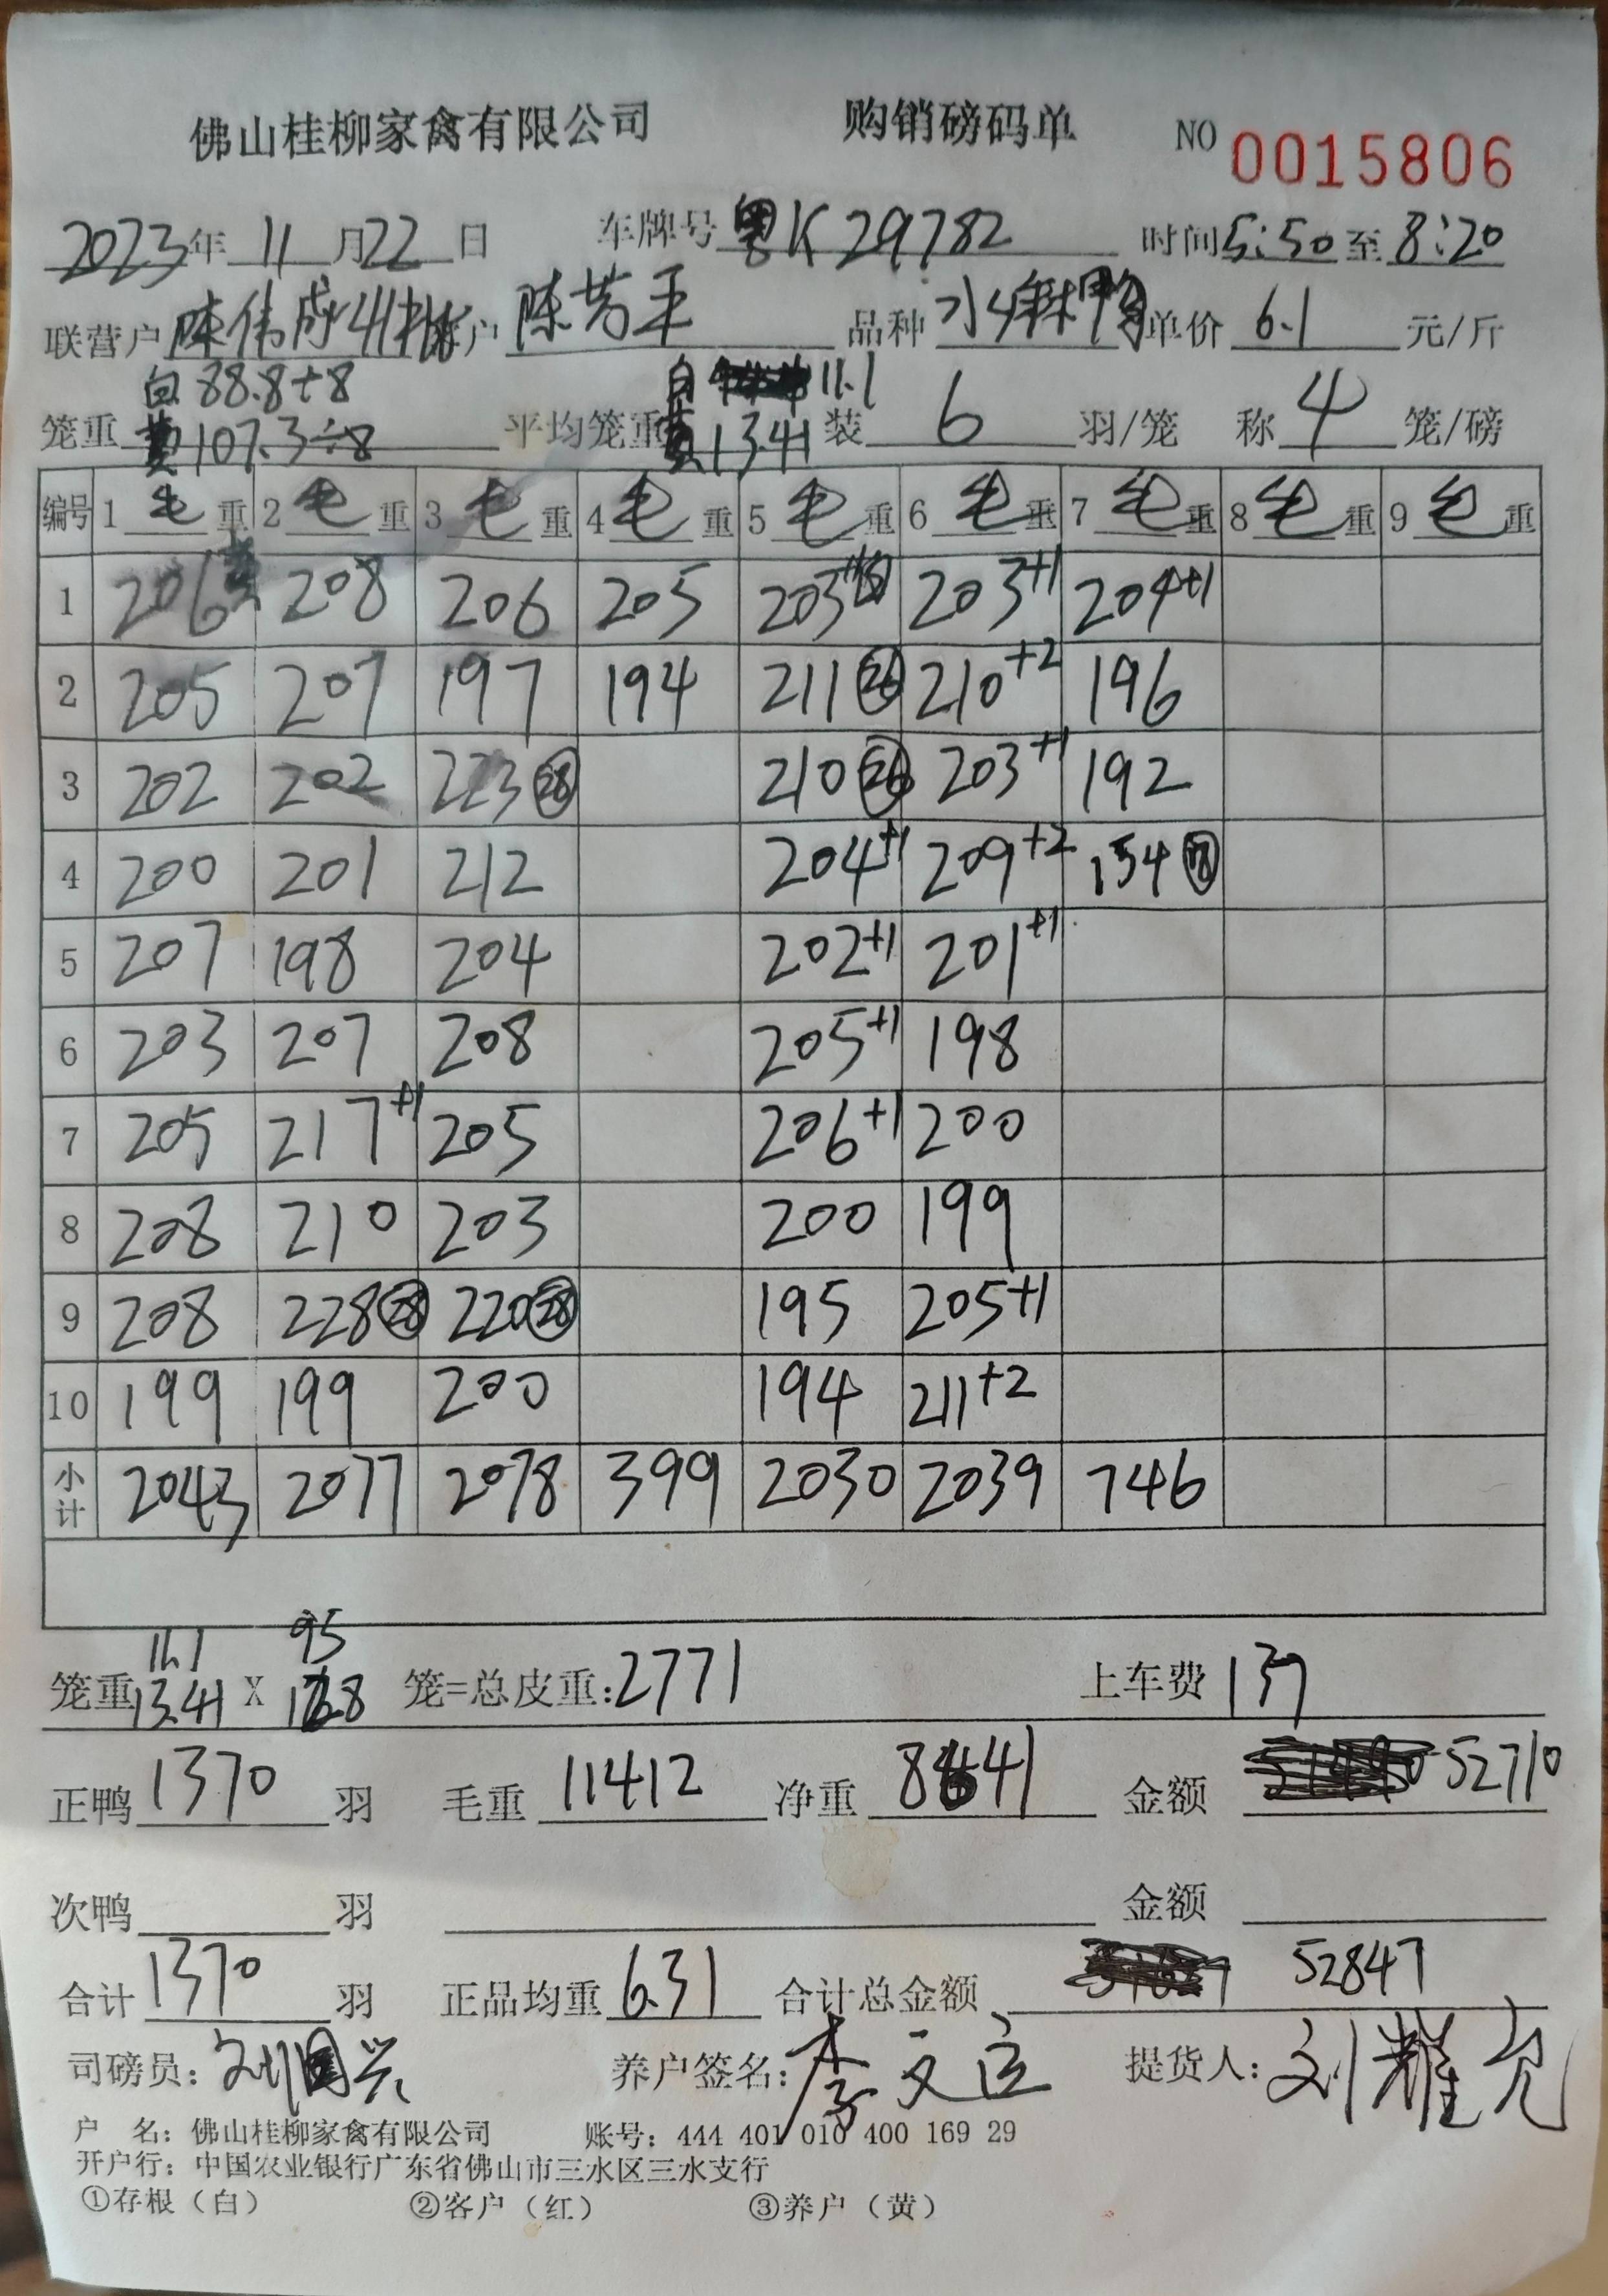 佛山桂柳家禽有限公司 购销磅码单 NO 0015806
2023年 11月22日 车牌号 粤K29782 时间5:50至8:20
联营户 陈伟成 户 陈芳平 品种 水麻鸭 单价 6.1 元/斤
白88.8÷8 白 11.1
笼重 黄107.3÷8 平均笼重 黄13.41 装 6 羽/笼 称 4 笼/磅
编号 1 毛 重 2 毛 重 3 毛 重 4 毛 重 5 毛 重 6 毛 重 7 毛 重 8 毛 重 9 毛 重
1 206黄 208 206 205 203 203+1 204+1
2 205 207 197 194 211 26 210+2 196
3 202 202 223 28 210 26 203+1 192
4 200 201 212 204+1 209+2 154 18
5 207 198 204 202+1 201+1
6 203 207 208 205+1 198
7 205 217+1 205 206+1 200
8 208 210 203 200 199
9 208 228 28 220 28 195 205+1
10 199 199 200 194 211+2
小计 2043 2077 2078 399 2030 2039 746
11.1 95
笼重 13.41 X 128 笼=总皮重:2771 上车费 137
正鸭 1370 羽 毛重 11412 净重 8641 金额 52710
次鸭 羽 金额
合计 1370 羽 正品均重 6.31 合计总金额 52847
司磅员: 刘国兴 养户签名: 李文立 提货人: 刘耀允
户 名: 佛山桂柳家禽有限公司 账号: 444 401 010 400 169 29
开户行: 中国农业银行广东省佛山市三水区三水支行
①存根（白） ②客户（红） ③养户（黄）